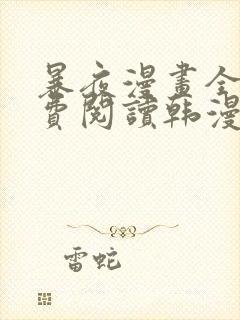 暴夜漫畫全
費閱讀韩漫
雷蛇